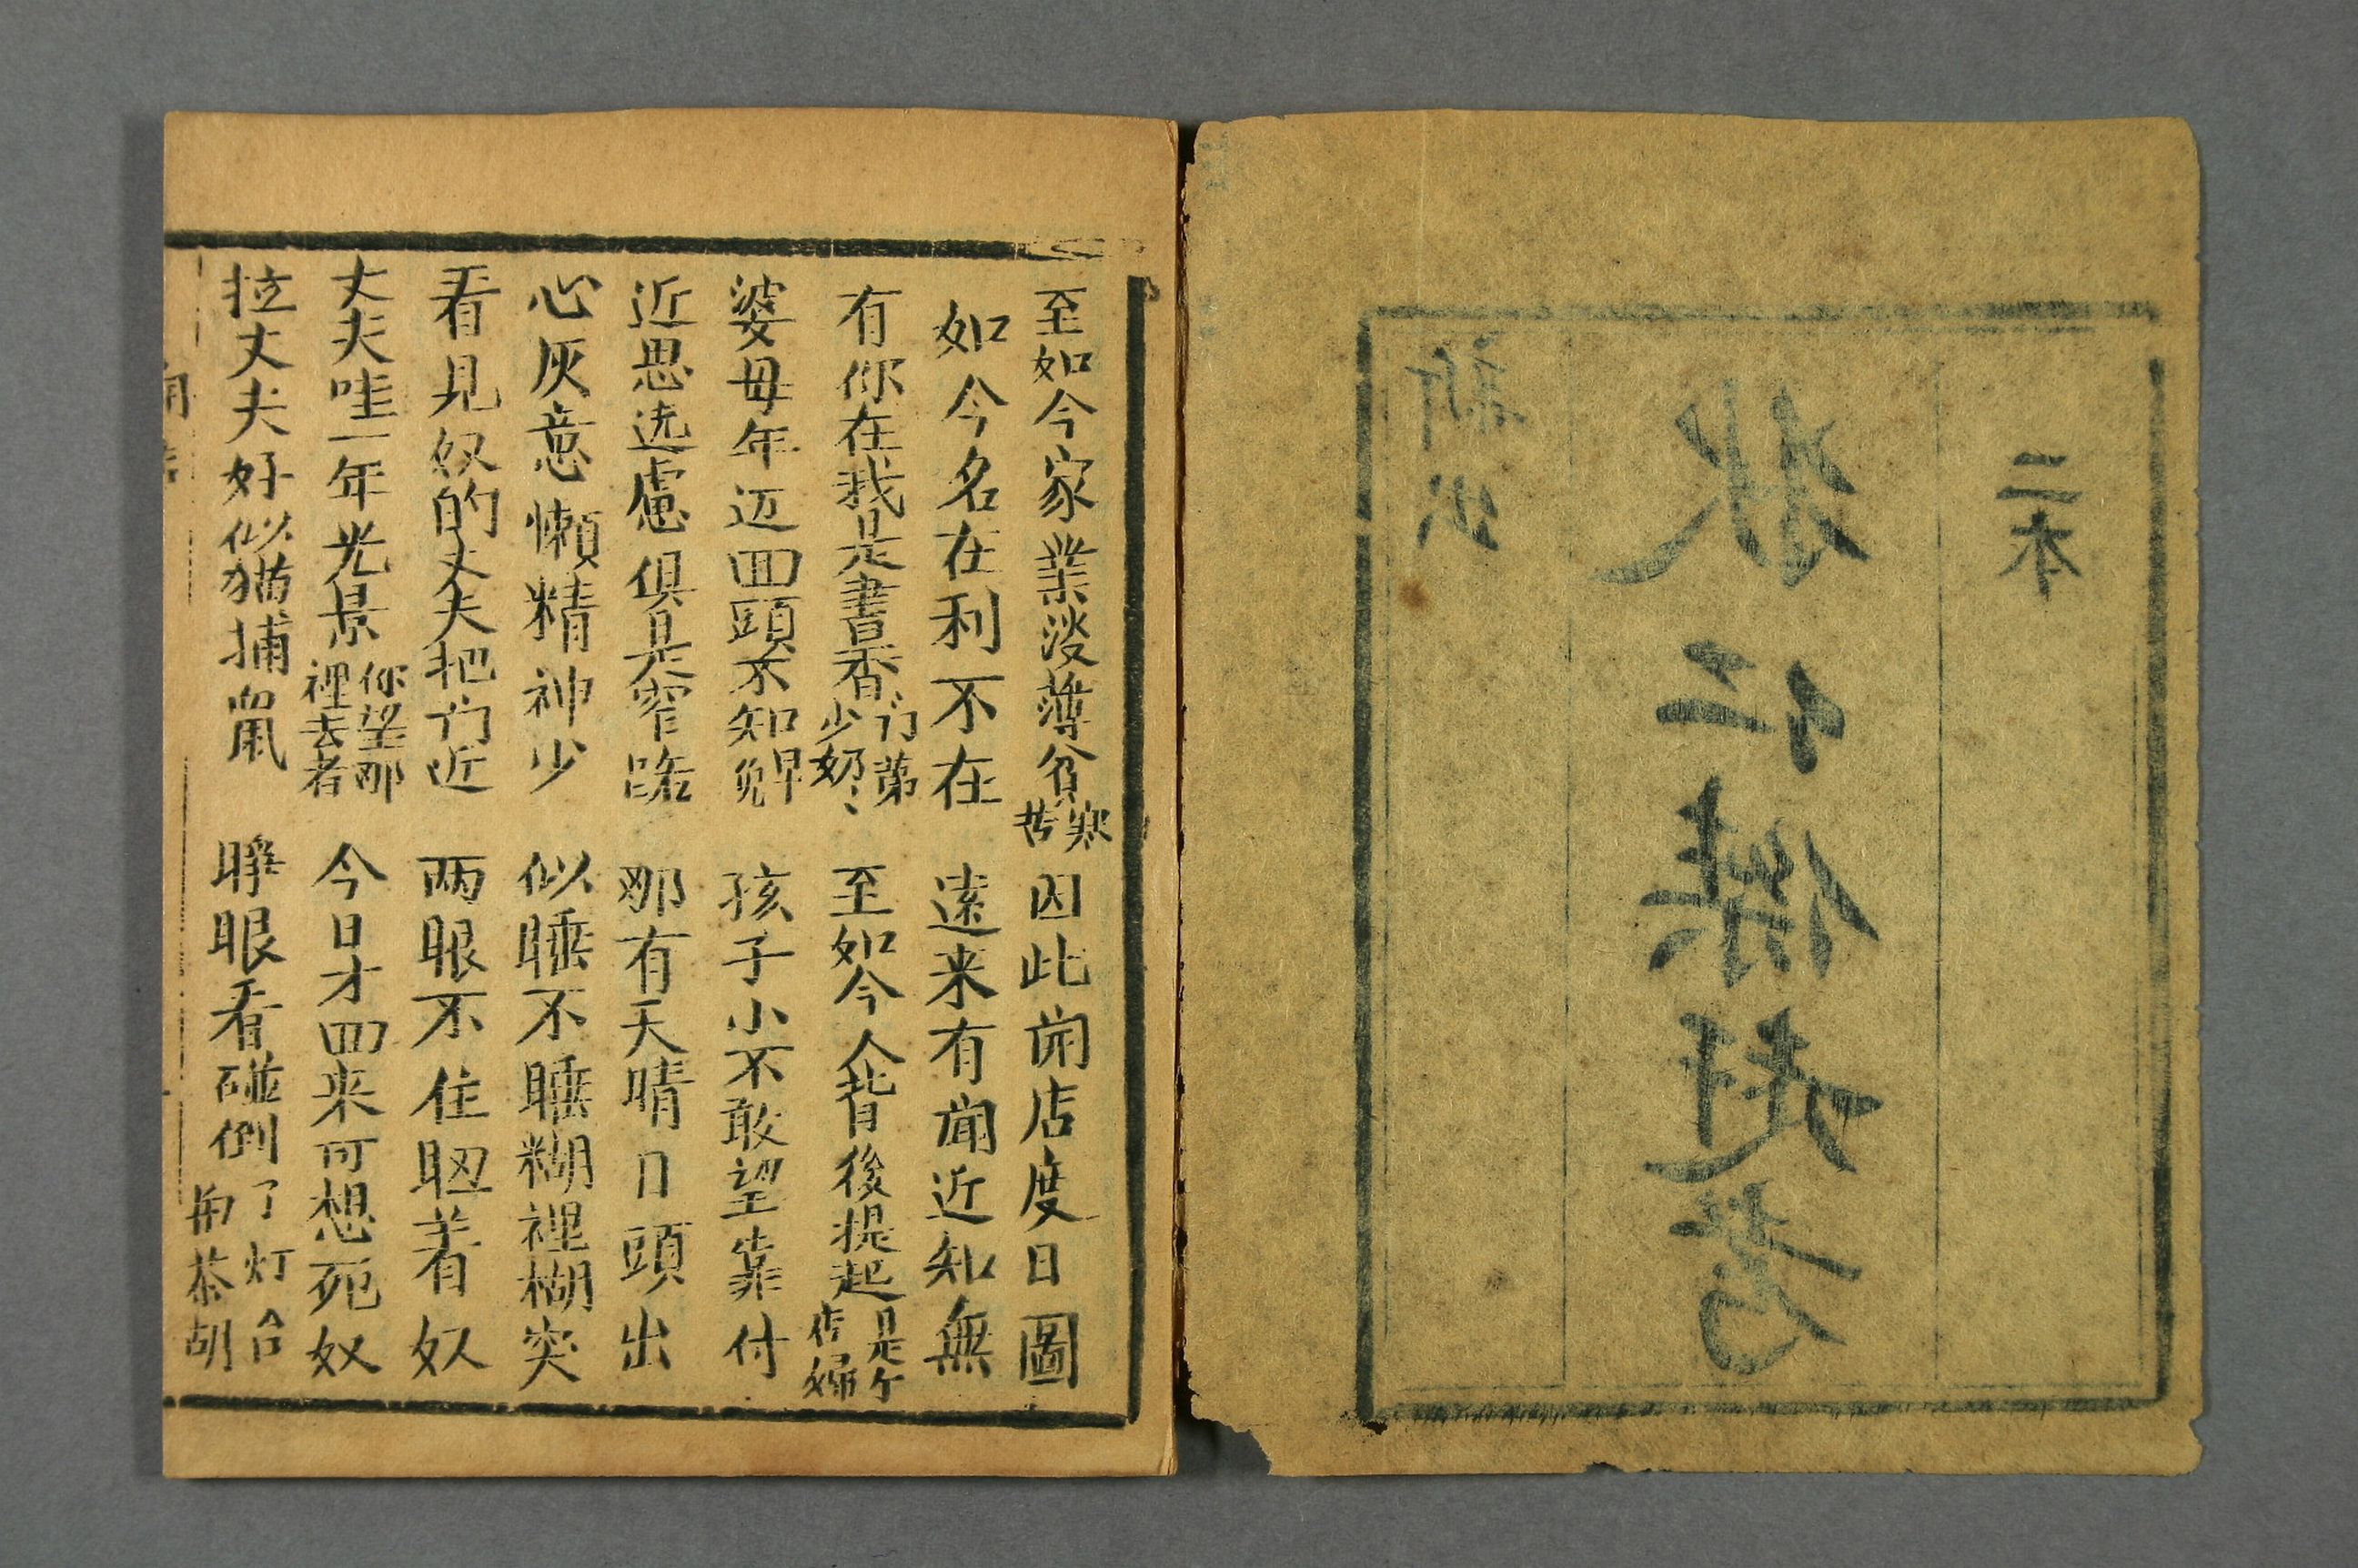 二本
狄仁傑赶考
新出
至如今家業淡薄貧寒苦 因此開店度日圖
如今名在利不在 遠来有聞近知無
有你在我是書香门第少奶〻 至如今人背後提起是个店婦
婆母年迈囬頭不知早晚 孩子小不敢望靠付
近思遠慮俱是窄路 那有天晴日頭出
心灰意懶精神少 似睡不睡糊裡糊突
看見奴的丈夫把门近 两眼不住䀹着奴
丈夫哇一年光景你望那裡去者 今日才囬来可想死奴
拉丈夫好似猫捕鼠 睜眼看碰倒了灯台角茶胡